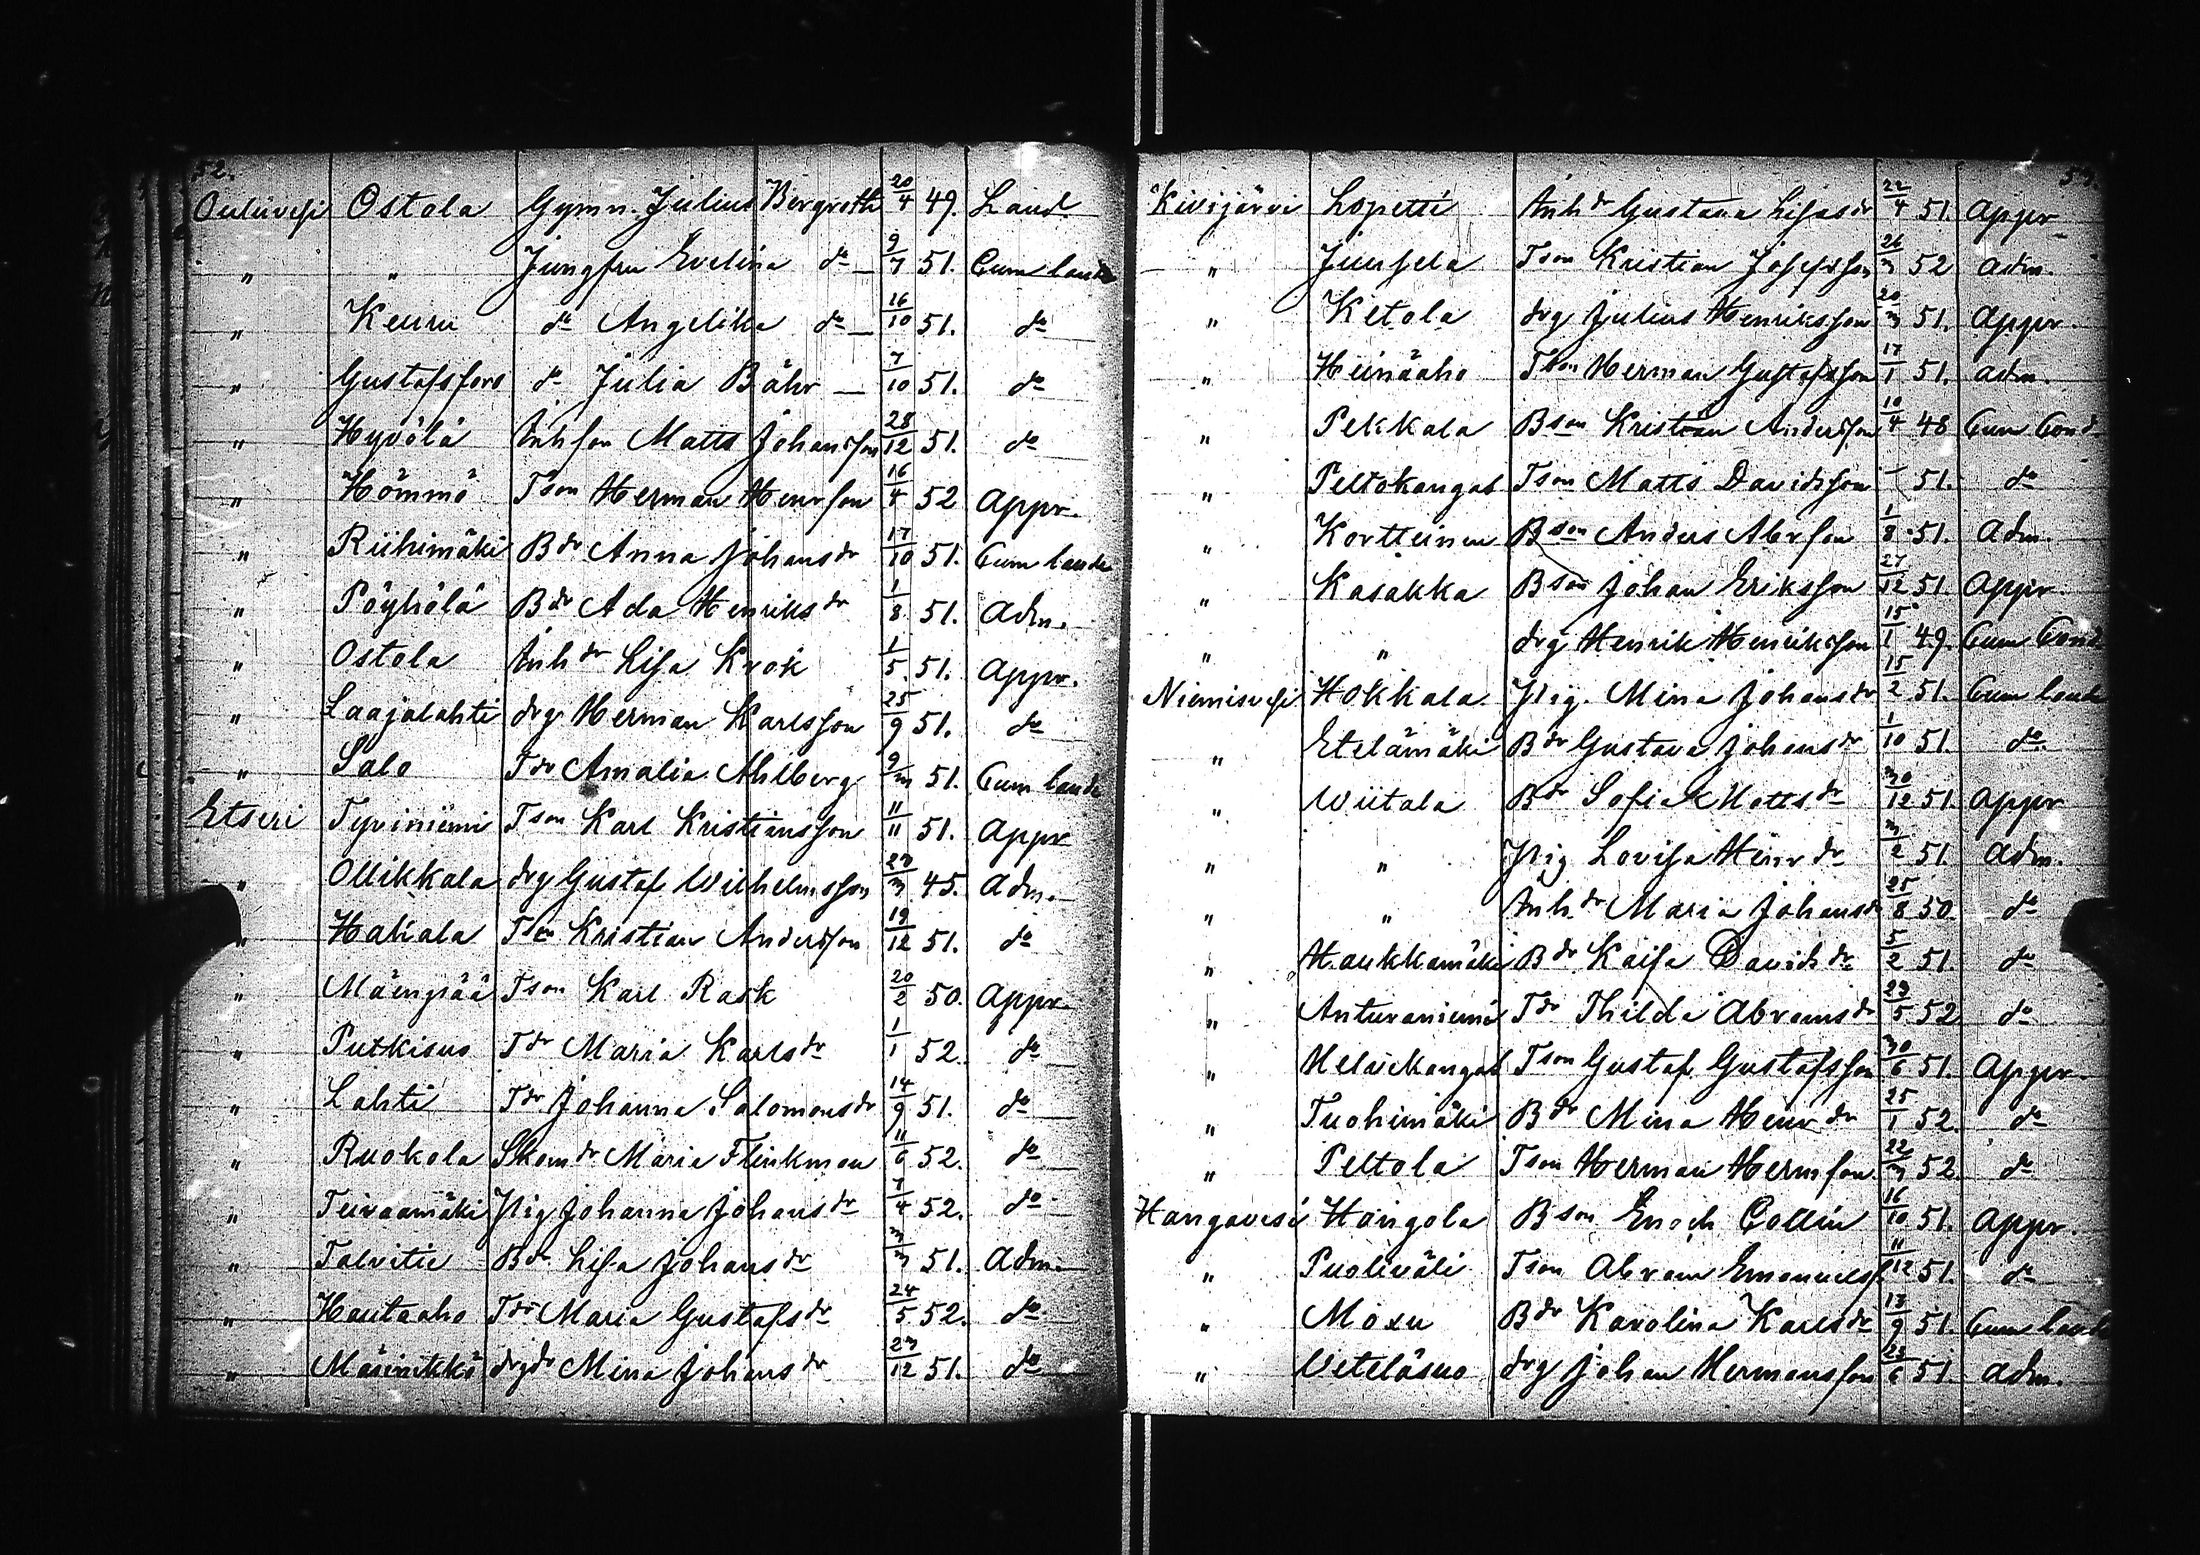 52.
Ouluvesi Ostola Gymn. Julius Bergroth 20/4 49. Laud.
" " Jungfru Evelina do 9/7 51. Cum laude
" Keuru do Angelika do 16/10 51. do
" Gustafsfors do Julia Bähr 7/10 51. do
" Hyvölä Inh son Matts Johansson 28/12 51. do
" Hömmö Tson Herman Henrson 16/4 52 Appr.
" Riihimäki Bdr Anna Johansdr 17/10 51. Cum laude
" Pöyhölä Bdr Ada Henriksdr 1/8 51. Adm.
" Ostola Inhdr Lisa Krok 1/5 51. Appr.
" Laajalahti drg Herman Karlsson 25/9 51. do
" Salo Tdr Amalia Ahlberg 9/3 51. Cum laude
Etseri Tyriniemi Tson Karl Kristiansson 11/11 51. Appr
" Ollikkala drg Gustaf Wilhelmsson 23/3 45. Adm.
" Hakala Tson Kristian Andersson 19/12 51. do
" Mäenpää Tson Karl Rask 20/2 50. Appr.
" Putkisuo Tdr Maria Karlsdr 1/1 52. do
" Lahti Tdr Johanna Salomonsdr 14/9 51. do
" Ruokola Skomdr Maria Flinkman 11/6 52. do
" Teivaamäki Pig Johanna Johansdr 7/4 52. do
" Talvitie Bdr Lisa Johansdr 3/3 51. Adm.
" Hautaaho Tdr Maria Gustafsdr 24/5 52. do
" Mäsinikkö drgdr Mina Johansdr 23/12 51. do
53.
Kivijärvi Lopetti Inhdr Gustava Lisasdr 22/4 51. Appr
" Juusela Tson Kristian Josefsson 26/3 52 Adm.
" Ketola drg Julius Henriksson 20/3 51. Appr.
" Heinäaho Tson Herman Gustafsson 17/1 51. Adm.
" Pekkala Bson Kristian Andersson 10/4 48 Cum Cond
" Peltokangas Tson Matts Davidsson – 51. do
" Kortteinen Bson Anders Abrson 1/8 51. Adm.
" Kasakka Bson Johan Eriksson 27/12 51 Appr.
" " drg Henrik Henriksson 15/1 49. Cum Cond
Niemisvesi Hokkala Pig. Mina Johansdr 15/2 51. Cum laude
" Etelämäki Bdr Gustava Johansdr 1/10 51. do
" Wiitala Bdr Sofia Mattsdr 30/12 51. Appr
" " Pig Lovisa Henrdr 3/2 51. Adm.
" " Inhdr Maria Johansdr 25/8 50 do
" Haukkamäki Bdr Kaisa Davidsdr 5/2 51. do
" Anturaniemi Tdr Thilda Abramsdr 23/5 52 do
" Helvikangas Tson Gustaf Gustafsson 30/6 51. Appr.
" Tuohimäki Bdr Mina Henrdr 25/1 52. do
" Peltola Tson Herman Hermson 22/3 52 do
Hangavesi Hangola Bson Enoch Collin 16/10 51. Appr.
" Puoliväli Tson Abram Emanuelss 11/12 51. do
" Moxu Bdr Karolina Karlsdr 13/9 51. Cum laude
" Veteläsuo drg Johan Hermansson 23/6 51. Adm.